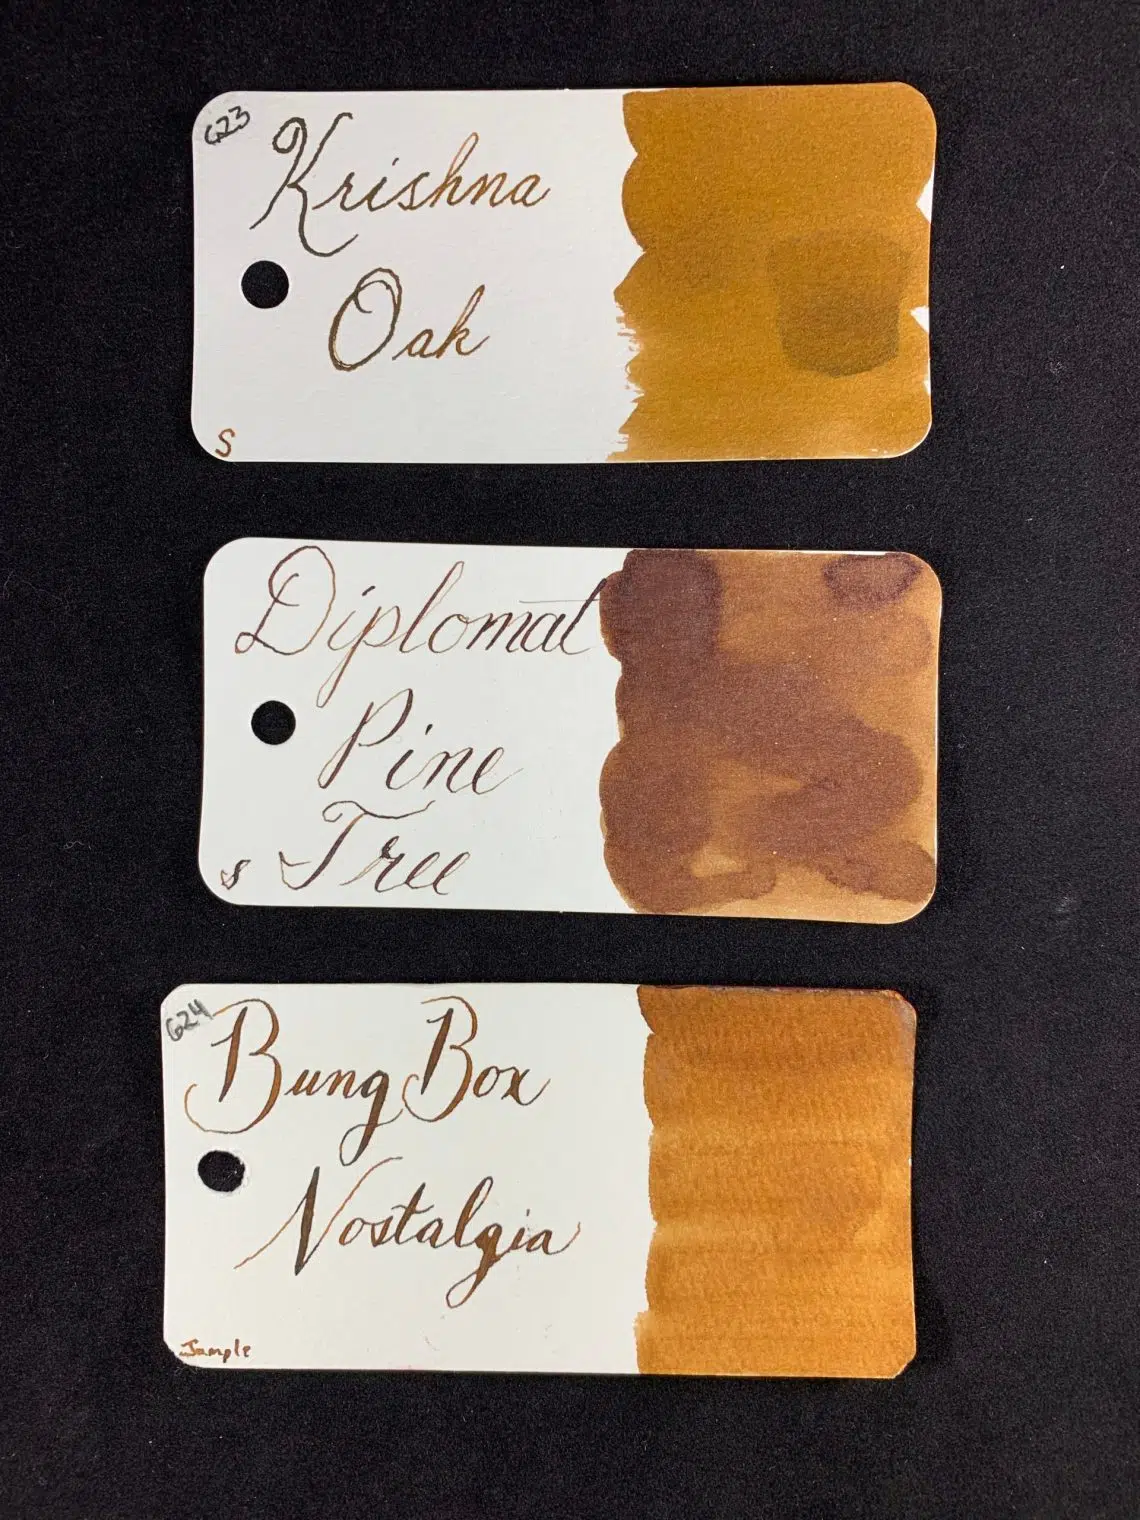 623
Krishna
Oak
S
Diplomat
Pine
Tree
S
624
Bung Box
Nostalgia
Sample